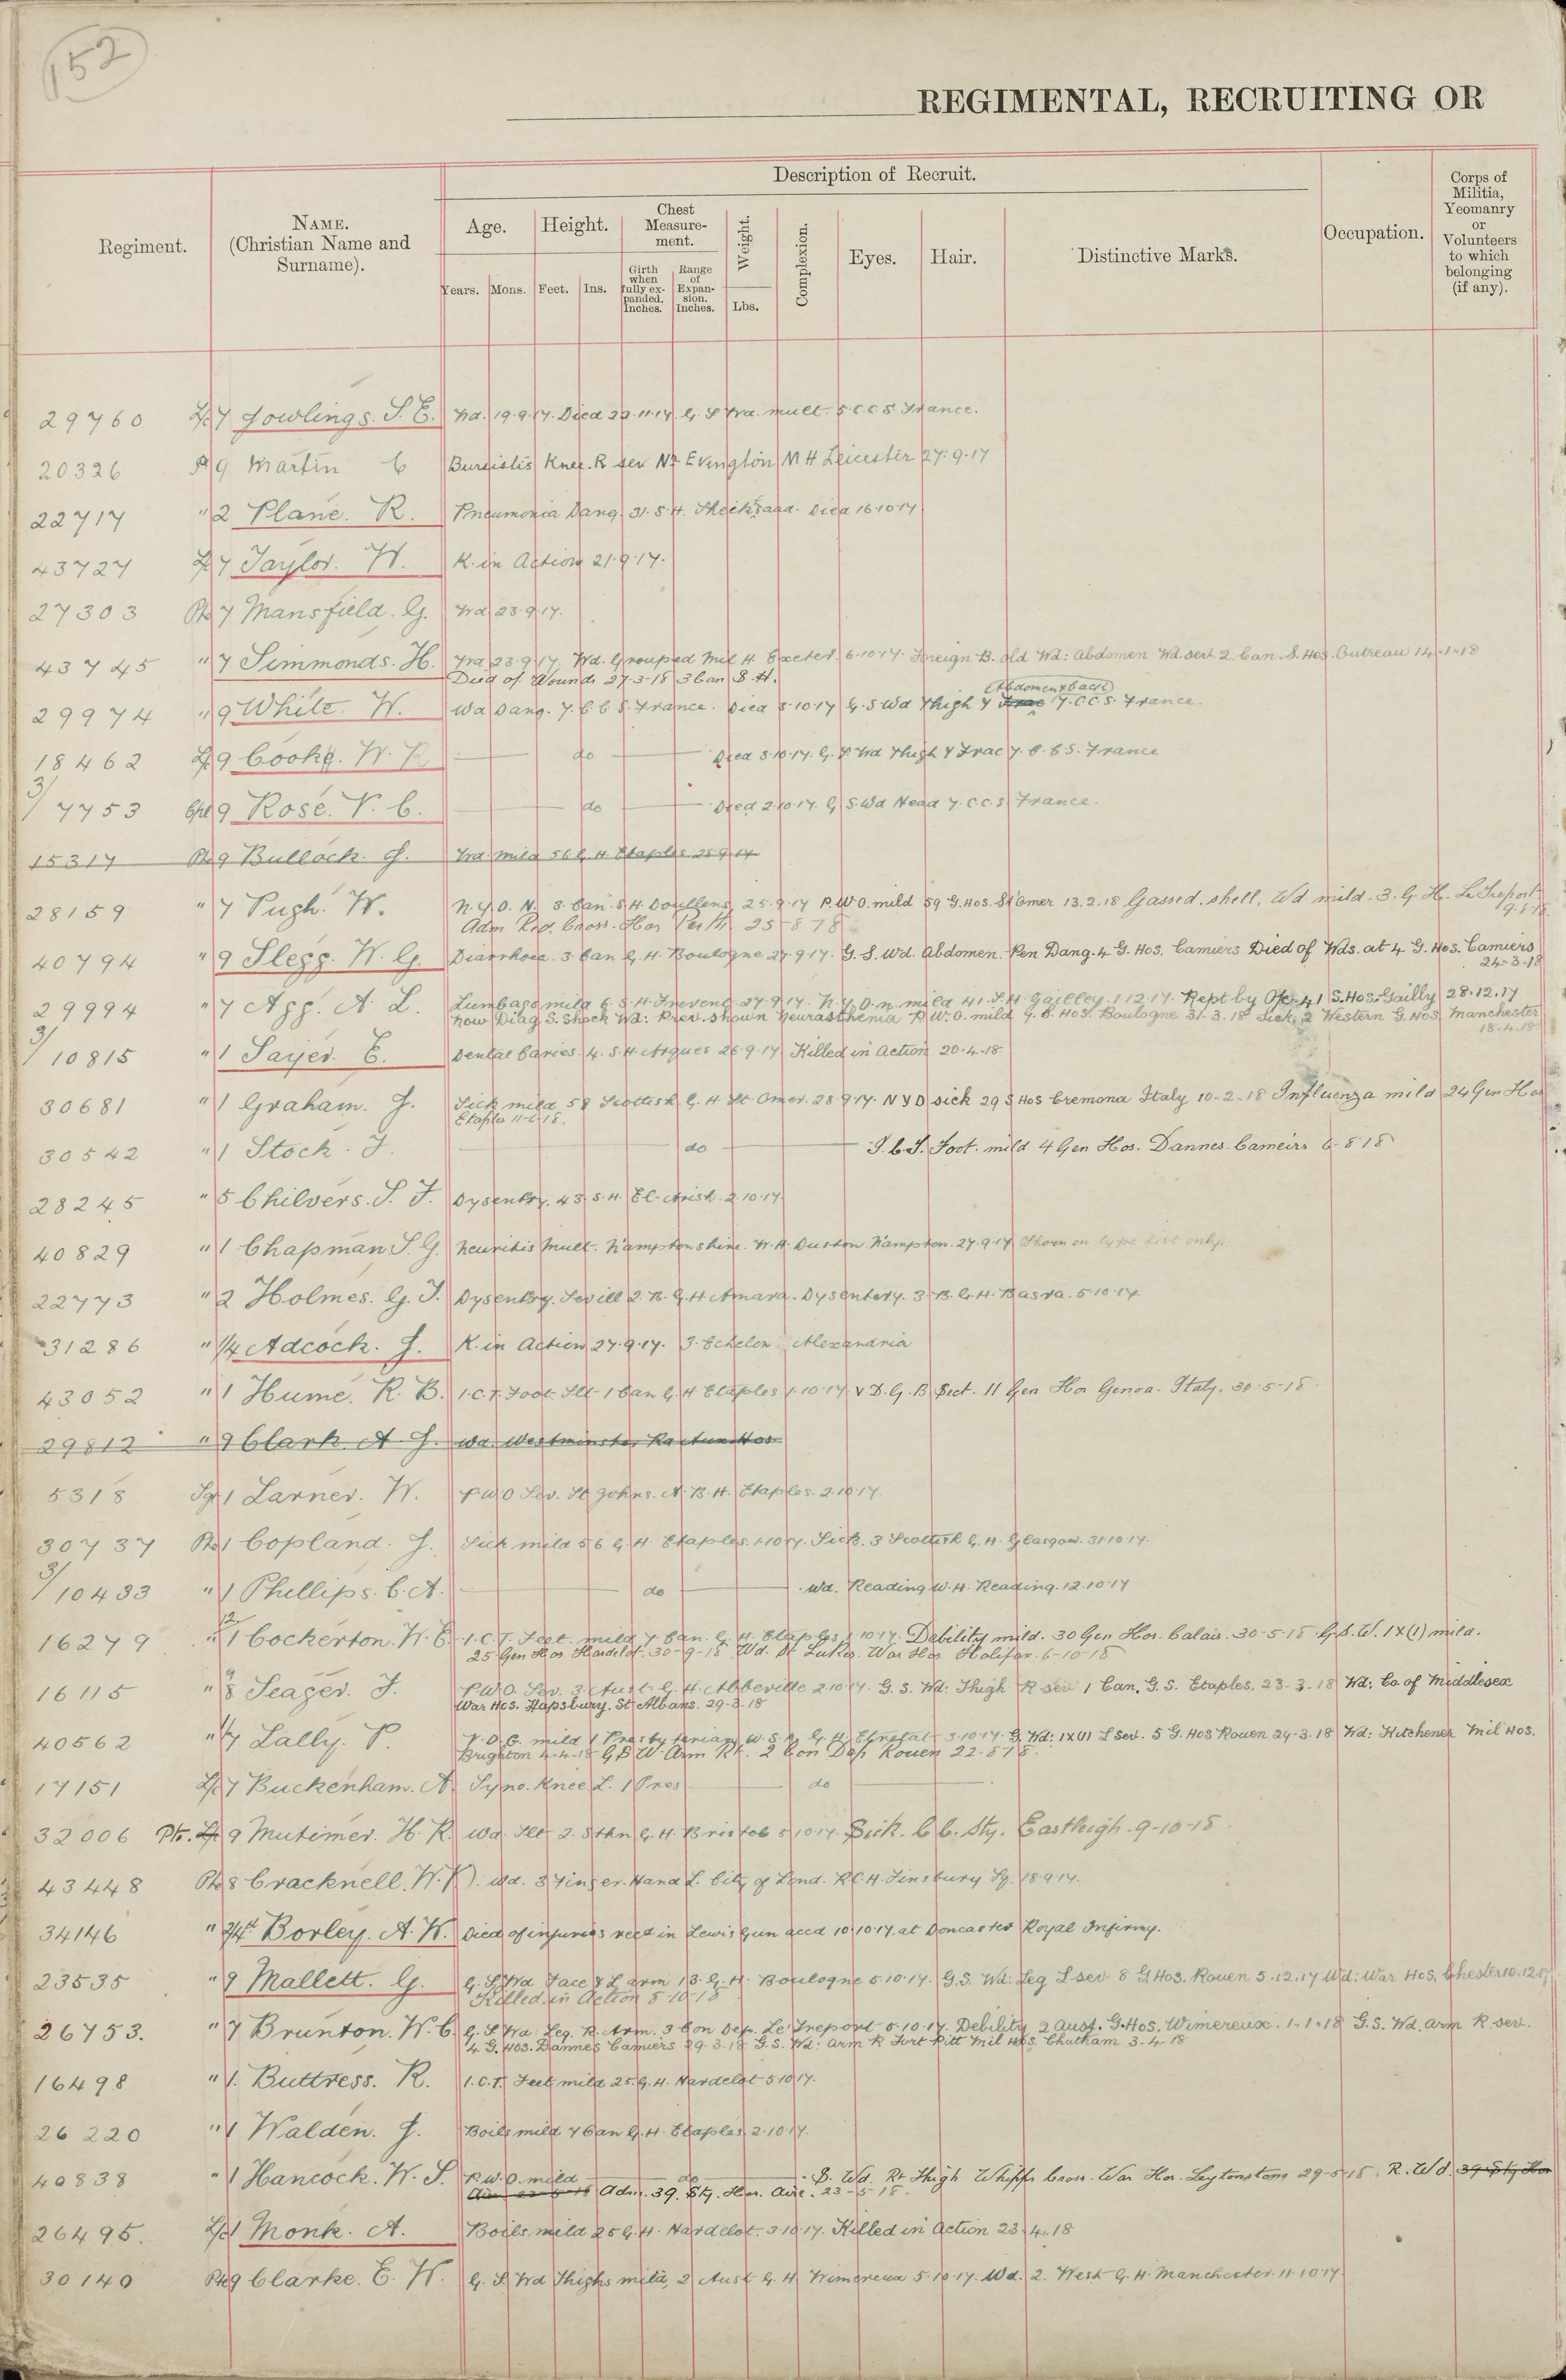 152
REGIMENTAL, RECRUITING OR
Description of Recruit.
Regiment.
NAME.
(Christian Name and
Surname).
Age.
Height.
Chest
Measure-
ment.
Weight.
Complexion.
Eyes.
Hair.
Distinctive Marks.
Occupation.
Corps of
Militia,
Yeomanry
or
Volunteers
to which
belonging
(if any).
Years.
Mons.
Feet.
Ins.
Girth
when
fully ex-
panded.
Inches.
Range
of
Expan-
sion.
Inches.
Lbs.
29760 L/c 7 Jowlings. S. E. Wd. 19.9.17. Died 22.11.17 G. S Wd. mult. 5 C.C.S France.
20326 Pt 9 Martin C Bursistis Knee. R sev Nr Evington M H Leicester 27.9.17
22717 " 2 Plane. R. Pneumonia Dang. 31. S. H. Sheik Saad. Died 16.10.17
43727 L/c 7 Taylor. W. K. in Action 21.9.17.
27303 Pte 7 Mansfield. G. Wd 23.9.17.
43745 " 7 Simmonds. H. Wd 23.9.17. Wd. Grouped Mil H. Exeter. 6.10.17. Foreign B. old Wd: Abdomen Wd. sev 2 Can. S. Hos. Outreau 14-1-18
Died of Wounds 27-3-18 3 Can S. H.
29974 " 9 White. W. Wd Dang. 7. C C S. France. Died 5.10.17 G. S Wd Thigh & Frac 7. C.C.S. France.
Abdomen & back
18462 L/c 9 Cooke. W. R do Died 3.10.17. G. S. Wd Thigh & Frac 7. C. C S. France
3/7753 Cpl 9 Rose. V. C. do Died 2.10.17. G S. Wd Head 7. C.C.S. France.
15317 Pte 9 Bullock. J. Wd. mild 56 G. H Etaples 25.9.17
28159 " 7 Pugh. W. N. Y. D. N. 3. Can. S. H. Doullens 25.9.17 P. W O. mild 59 G. Hos. St Omer 13.2.18 Gassed. shell. Wd mild. 3. G. H. Le Treport
9.5.18.
Adm Red. Cross. Hos Perth 25-8-18
40794 " 9 Slegg. W. G. Diarrhoea. 3. Can G. H. Boulogne 27.9.17. G. S. Wd. Abdomen. Pen Dang. 4 G. Hos. Camiers Died of Wds. at 4 G. Hos. Camiers
24-3-18
29994 " 7 Agg. A. L. Lumbago mild 6. S. H. Frevent 27.9.17. N. Y. D. n. mild 41. S. H. Gailley. 1.12.17. Rept by Ofc. 41 S. Hos. Gailly 28.12.17
now Diag. S. Shock Wd: Prev. shown Neurasthenia P. W. O. mild 7. C. Hos. Boulogne 31.3.18 Sick, 2 Western G. Hos Manchester
18-4-18
3/10815 " 1 Sayer. E. Dental Caries. 4. S. H Arques 26.9.17 Killed in Action 20.4.18
30681 " 1 Graham. J. Sick mild 58 Scottish G. H St Omer. 28 9.17. N Y D sick 29 S Hos Cremona Italy 10-2-18 Influenza mild 24 Gen Hos
Etaples 11-6-18.
30542 " 1 Stock. J. do I. C. T. Foot. mild 4 Gen Hos. Dannes. Cameirs 6-8 18
28245 " 5 Chilvers. S. J. Dysentry. 43. S. H. El-Arish. 2.10.17.
40829 " 1 Chapman S. G. Neuritis mult. N'amptonshire. W. H. Duston. N'ampton. 27.9.17 Shown on type list only.
22773 " 2 Holmes. G. J. Dysentry. Sev ill 2. B. G. H Amara. Dysentery. 3. B. G. H. Basra. 5 10.17.
31286 " 1/4 Adcock. J. K. in Action 27.9.17. 3. Echelon Alexandria
43052 " 1 Hume. R. B. I.C.T. Foot. Slt. 1 Can G. H Etaples 1.10.17. V D. G. B Sect. 11 Gen Hos Genoa. Italy. 30-5-18
29812 " 9 Clark. A. J. Wd. Westminster
5318 Sgt 1 Larner. W. P W O Sev. St Johns. A. B. H. Etaples. 2.10.17.
30737 Pte 1 Copland. J. Sick mild 56 G. H. Etaples. 1.10.17. Sick. 3 Scottish G. H. Glasgow. 31.10.17.
3/10433 " 1 Phillips. C. A. do Wd. Reading W. H. Reading. 12.10.17
16279 " 12 1 Cockerton. W. E. I.C.T. Feet. mild 7 Can. G. H. Etaples 1.10.17. Debility mild. 30 Gen Hos. Calais. 30-5-18 G. S. W. 1X (1) mild.
25 Gen Hos Hardelot. 30-9-18 Wd. St Lukes. War Hos. Halifax. 6-10-18
16115 " 8 9 Seager. J. P W O. Sev. 3 Aust. G. H. Abbeville 2 10.17. G. S. Wd: Thigh R sev 1 Can. G. S. Etaples. 23-3-18 Wd: Co. of Middlesex
War Hos. Napsbury. St Albans. 29-3-18
40562 " 1/7 Lally. P. V. D. G. mild 1 Presbyterian W. S. A G. H. Etretat 3.10.17. G Wd: 1X (1) L Sev. 5 G. Hos Rouen 24-3-18 Wd: Kitchener Mil Hos.
Brighton 4-4-18 G S W. Arm Rt. 2 Con Dep Rouen 22-8-18.
17151 L/c 7 Buckenham. A. Syno. Knee L. 1 Pres do
32006 Pte. 9 Mutimer. H. R. Wd. Slt 2. Sthn G. H. Bristol 5.10.17. Sick. C C. Sty. Eastleigh. 9-10-18.
43448 Pte 8 Cracknell. W. F). Wd. 3 Finger. Hand L. City of Lond. R.C.H. Finsbury Sq. 18.9.17.
34146 " 2/4th Borley. A. W. Died of injuries recd in Lewis Gun accd 10.10.17. at Doncaster Royal Infirmy.
23535 " 9 Mallett. G. G. S. Wd Face & L arm 13. G. H. Boulogne 5.10.17. G.S. Wd: Leg L sev 8 G. Hos. Rouen 5.12.17 Wd: War Hos. Chester 10.12.17
Killed in Action 8-10-18
26753. " 7 Brunton. W. C. G. S Wd: Leg. R. Arm. 3 Con Dep. Le Treport 5.10.17. Debility 2 Aust. G. Hos. Wimereux. 1-1-18 G. S. Wd. arm R sev.
4 G. Hos. Dannes Camiers 29-3-18 G. S. Wd: arm R Fort Pitt Mil Hos. Chatham 3-4-18
16498 " 1. Buttress. R. I.C.T. Feet mild 25. G. H. Hardelot 3 10 17.
26220 " 1 Walden. J. Boils mild 7 Can G. H. Etaples. 2.10.17.
40838 " 1 Hancock. W. S. P. W. O. mild do S. Wd. Rt Thigh Whipps Cross. War Hos. Leytonstone 29-5-18. R. Wd. 39 Sty Hos
Adm. 39. Sty. Hos. Aire. 23-5-18.
26495. L/c 1 Monk. A. Boils mild 25 G. H. Hardelot. 3.10.17. Killed in Action 23.4.18
30140 Pte 9 Clarke. E. W. G. S. Wd Thighs mild, 2 Aust G. H Wimereux 5.10.17. Wd. 2. West G. H. Manchester. 11.10.17